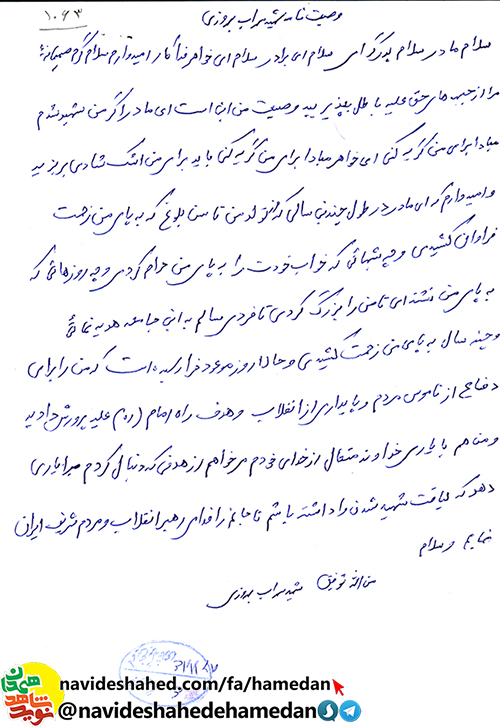 ۱۰۶۳
وصیت نامه شهید سهراب بروزی
سلام مادر سلام پدر گرامی سلام ای برادر سلام ای خواهر فداکار امیدوارم سلام گرم صمیمانهٔ
مرا از جبهه های حق علیه باطل بپذیرید وصیت من این است ای مادر اگر من شهید شدم
مبادا برای من گریه کنی ای خواهر مبادا برای من گریه کنی باید برای من اشک شادی بریزید
و امیدوارم که ای مادر در طول چندین سالی که از تولد من تا سن بلوغ که به پای من زحمت
فراوان کشیدی و چه شبهائی که خواب خودت را به پای من حرام کردی و چه روزهائی که
به پای من نشسته ای تا من را بزرگ کردی تا فردی سالم به این جامعه هدیه نمائی
و چند سال به پای من زحمت کشیدی و حالا روز موعود فرا رسیده است که من را برای
دفاع از ناموس مردم و پایداری از انقلاب و هدف راه امام (ره) علیه پرورش دادید
و من هم با یاری خداوند متعال از خدای خودم میخواهم از هدفی که دنبال کردم مرا یاری
دهد که لیاقت شهید شدن را داشته باشم تا جانم را فدای رهبر انقلاب و مردم شریف ایران
نمایم و سلام
من الله توفیق شهید سهراب بروزی
نوید شاهد همدان
navideshahed.com/fa/hamedan
@navideshahedehamedan